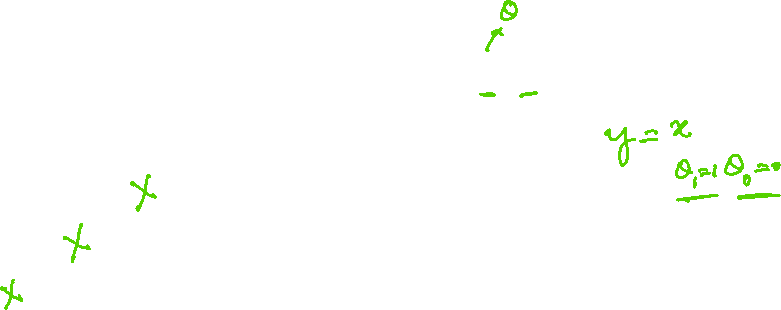 θ
y = x
θ₁=1 θ₀=0
X
X
X